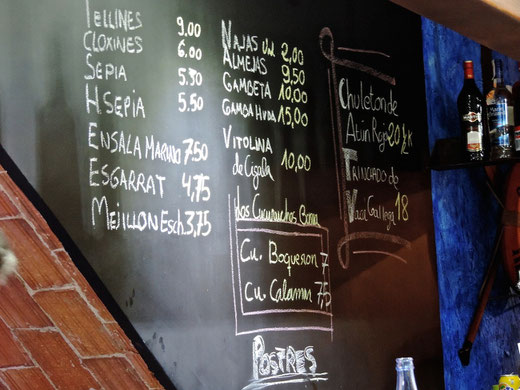 TELLINES 9.00
CLOXINES 6.00
SEPIA 5.50
H.SEPIA 5.50
ENSALA MARINO 7.50
ESGARRAT 4,75
MEJILLON Esch. 3,75
NAJAS Ud 2,00
ALMEJAS 9.50
GAMBETA 10,00
15,00
VITOLINA
de Cigala 10,00
los Cucuruchos
Cu. Boqueron 7
Cu. Calamar 7,5
POSTRES
Chuleton de
Atun Rojo 20 €/K
TRINCADO de
Vaca Gallega 18